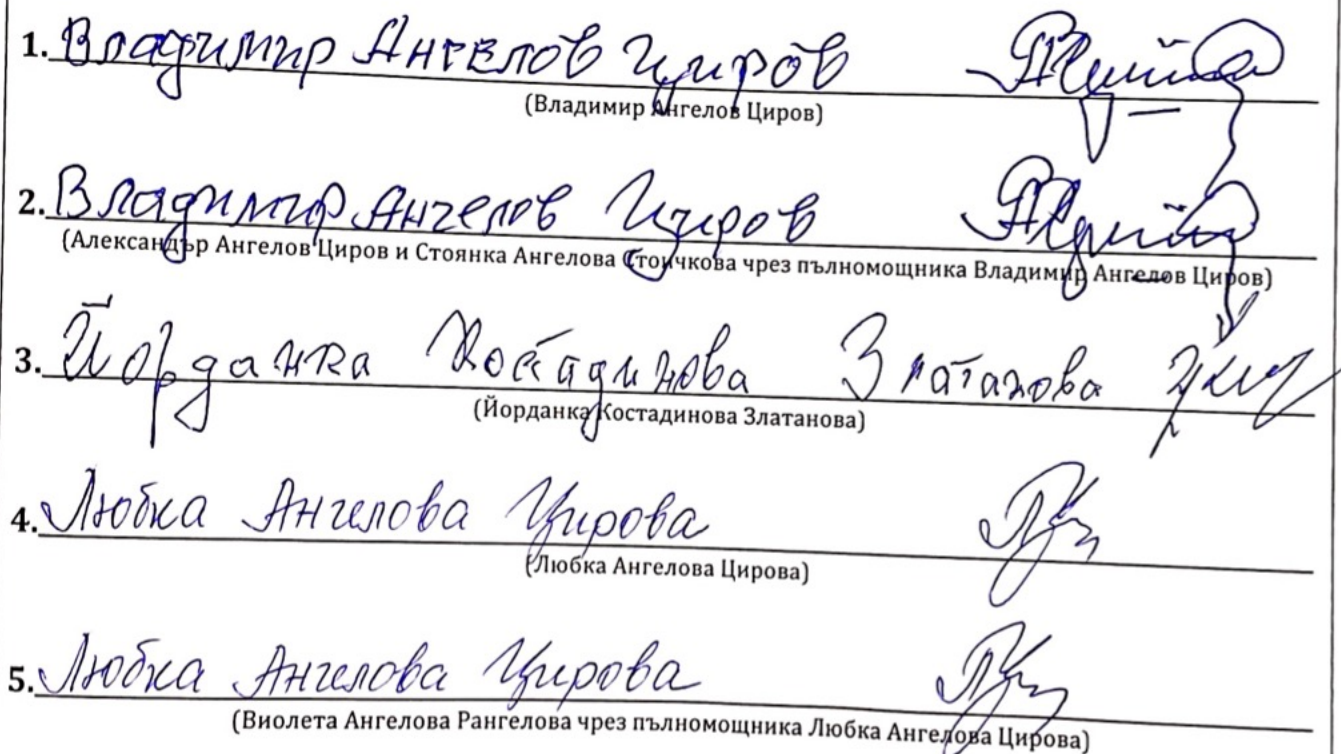 1. Владимир Ангелов Циров
(Владимир Ангелов Циров)
2. Владимир Ангелов Циров
(Александър Ангелов Циров и Стоянка Ангелова Стоичкова чрез пълномощника Владимир Ангелов Циров)
3. Йорданка Костадинова Златанова
(Йорданка Костадинова Златанова)
4. Любка Ангелова Цирова
(Любка Ангелова Цирова)
5. Любка Ангелова Цирова
(Виолета Ангелова Рангелова чрез пълномощника Любка Ангелова Цирова)